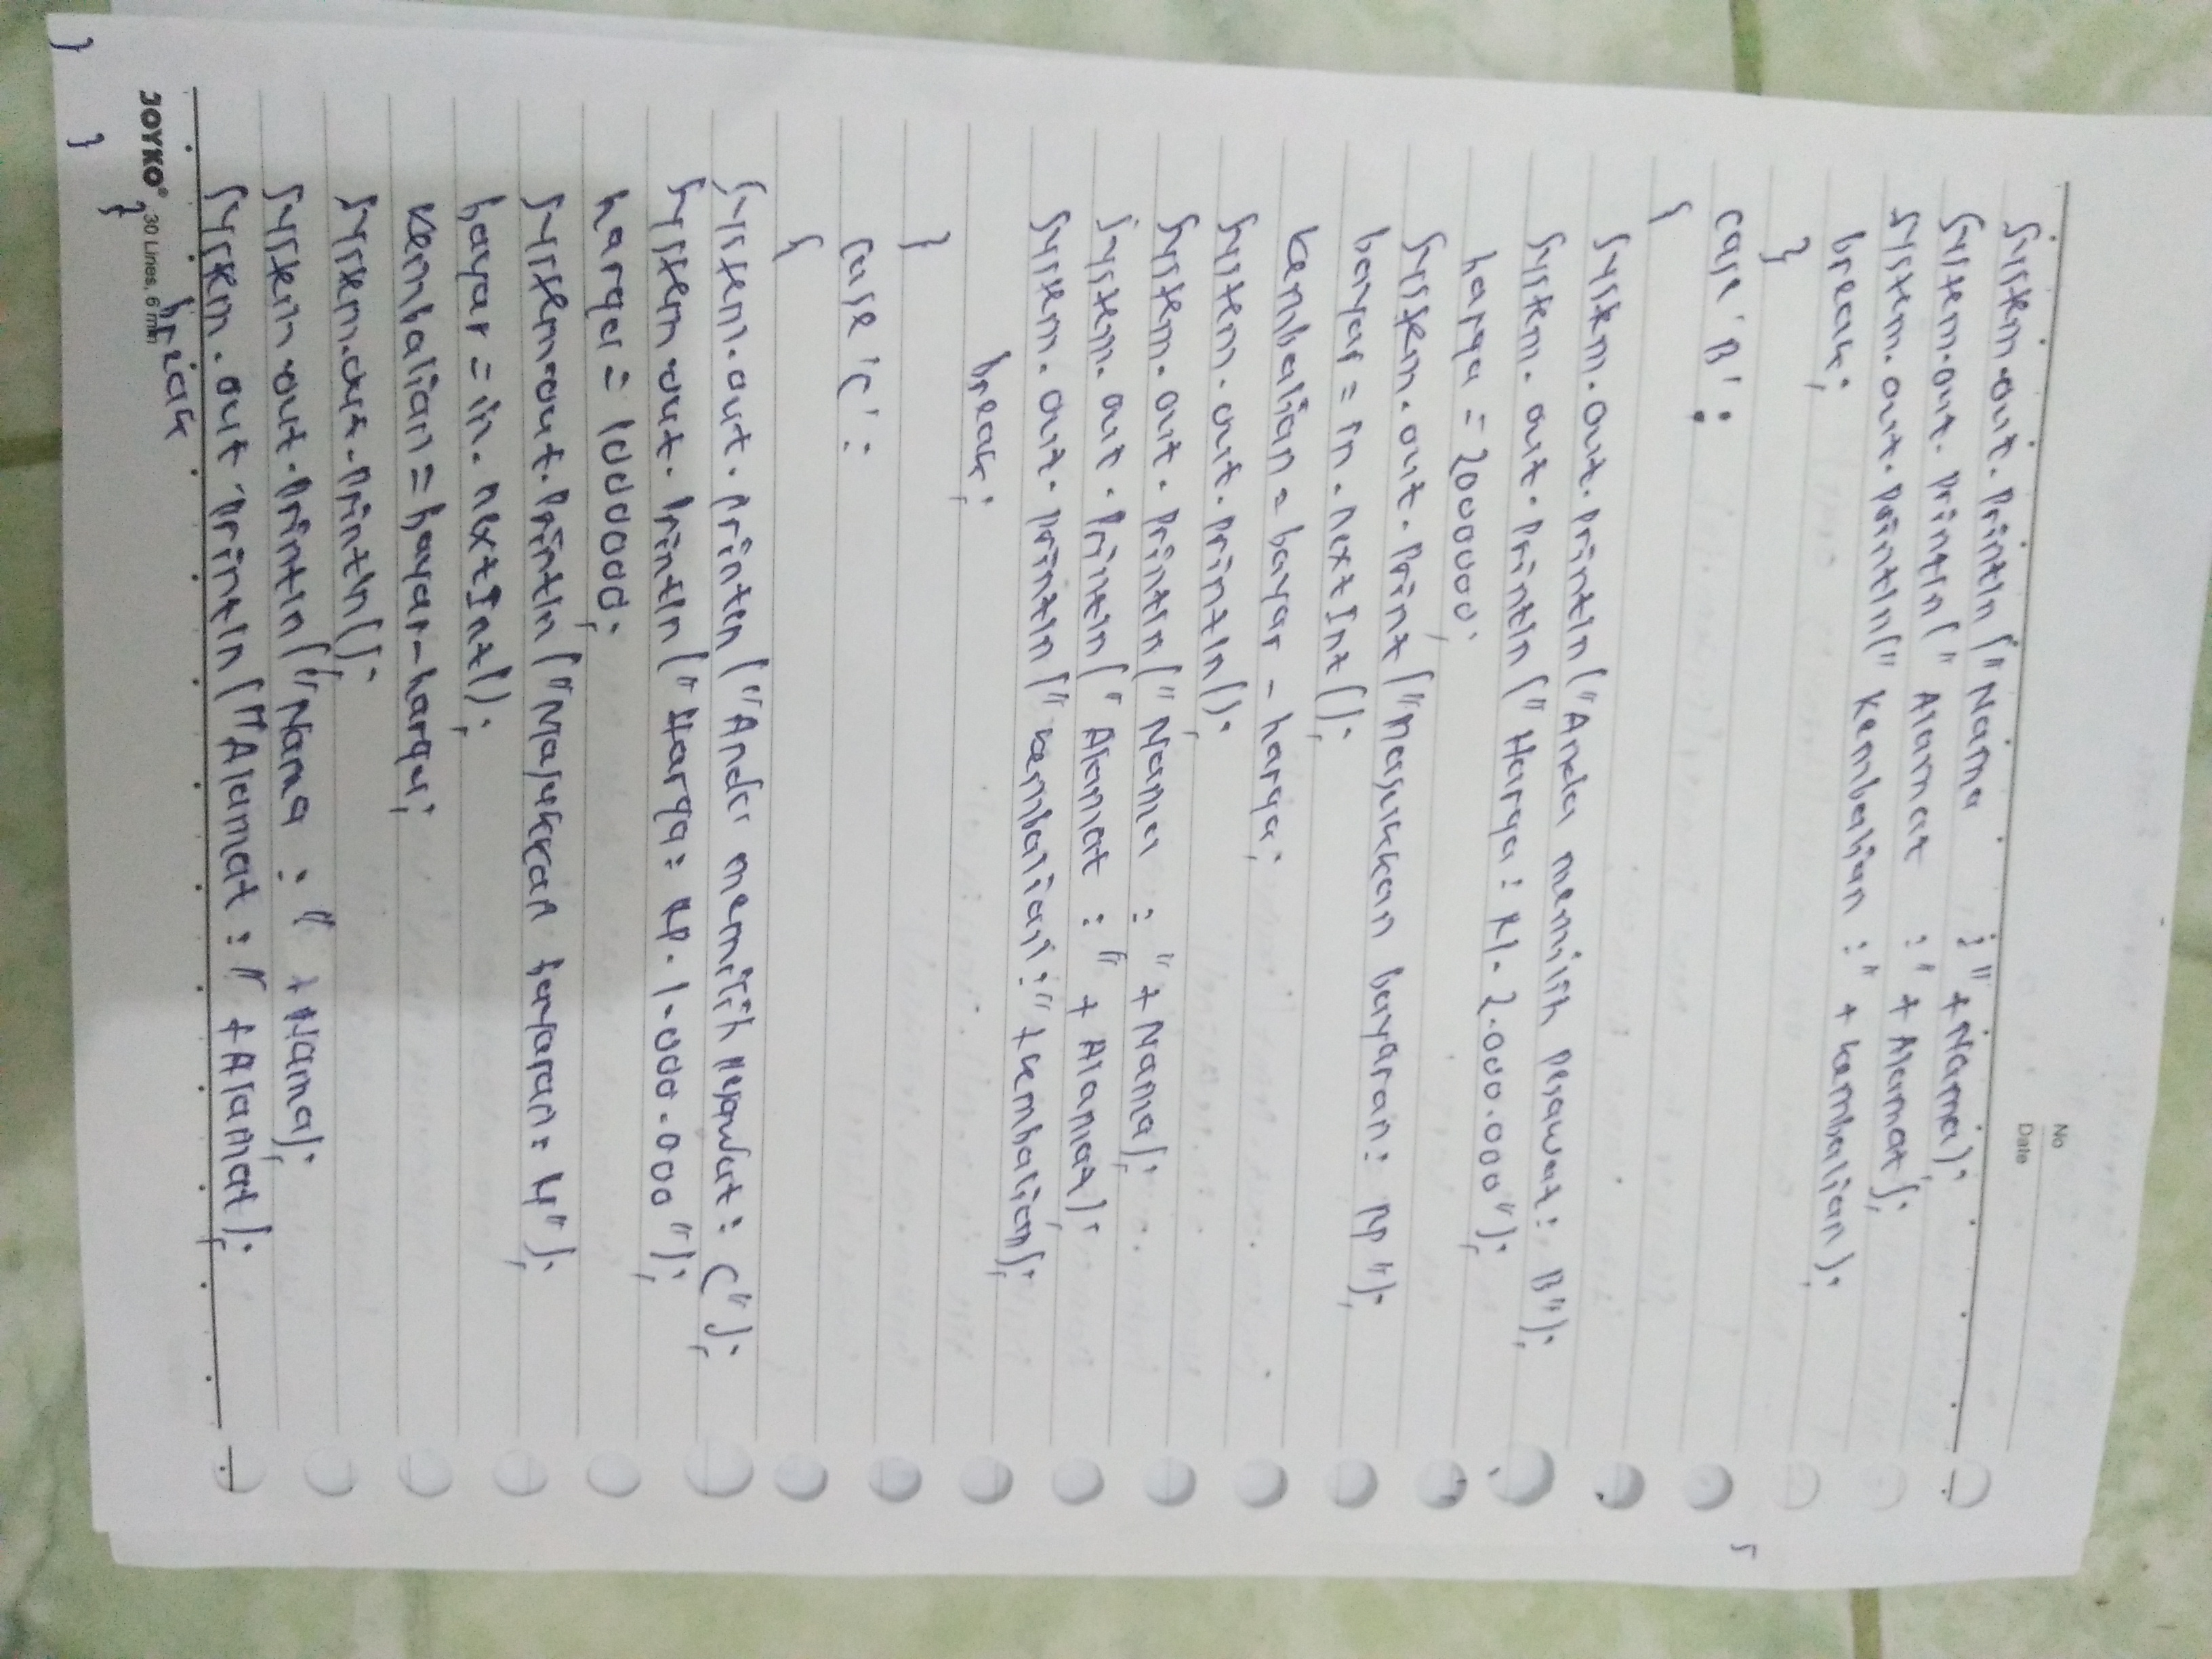 No
Date
System.out.println("Nama : " + Nama);
System.out.println(" Alamat : " + Alamat);
System.out.println(" Kembalian : " + kembalian);
break;
}
case 'B' :
{
System.out.println("Anda memilih pesawat : B");
System.out.println(" Harga : Rp. 2.000.000");
harga = 2000000;
System.out.print("Masukkan bayaran : Rp ");
bayar = in.nextInt();
Kembalian = bayar - harga;
System.out.println();
System.out.println("Nama : " + Nama);
System.out.println(" Alamat : " + Alamat);
System.out.println(" kembalian : " + kembalian);
break;
}
case 'C' :
{
System.out.println("Anda memilih pesawat : C");
System.out.println("Harga : Rp. 1.000.000 ");
harga = 1000000;
System.out.println("Masukkan bayaran = ");
bayar = in.nextInt();
Kembalian = bayar - harga;
System.out.println();
System.out.println("Nama : " + Nama);
System.out.println("Alamat : " + Alamat);
break
JOYKO® 30 Lines, 6 mm
}
}
}